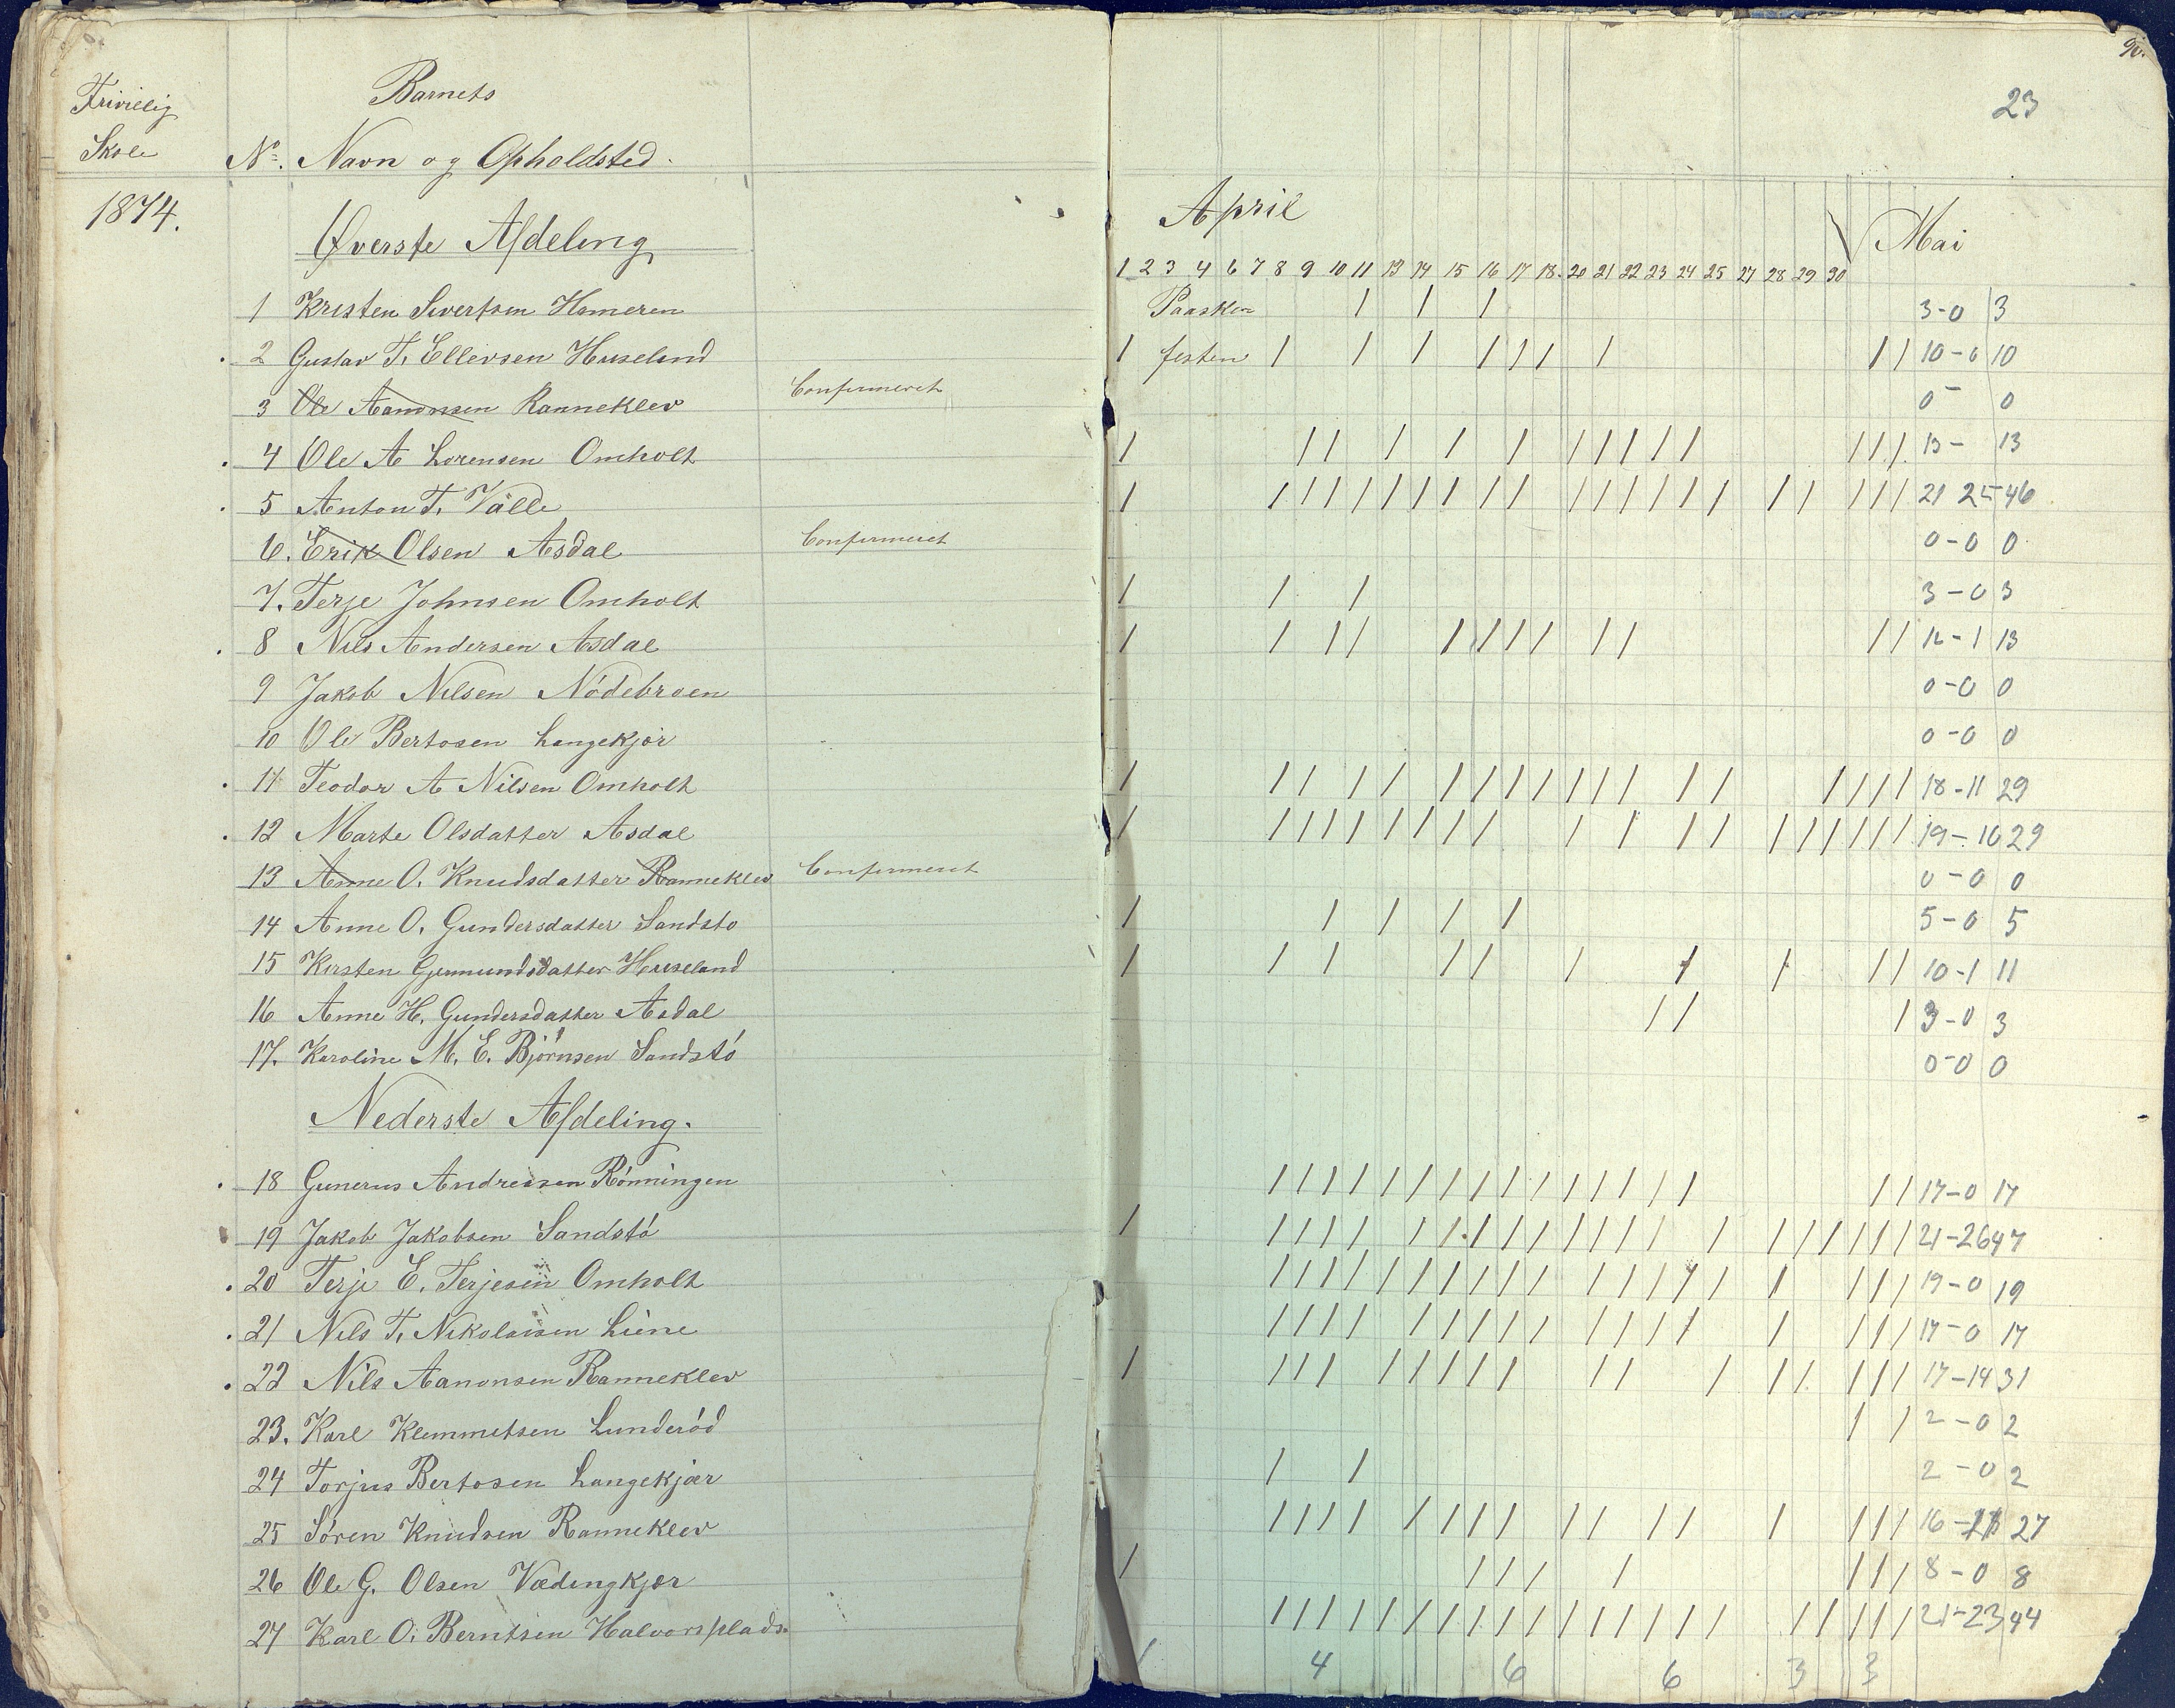 Frivillig
Skole
1874.
Barnets
No. Navn og Opholdsted.
Øverste Afdeling
1 Kristen Sivertsen Homeren
2 Gustav T. Ellevsen Huseland
3 Ole Aanonsen Ranneklev Confirmeret
4 Ole A Lorensen Omholt
5 Anton T. Välle
6. Erik Olsen Asdal Confirmeret
7. Terje Johnsen Omholt
8 Nils Andersen Asdal
9 Jakob Nilsen Nódebroen
10 Ole Bertosen Langekjær
11 Teodor A Nilsen Omholt
12 Marte Olsdatter Asdal
13 Anne O. Knudsdatter Ranneklev Confirmeret
14 Anne O. Gundersdatter Sandsto
15 Kirsten Gjermundsdatter Huseland
16 Anne H. Gundersdatter Asdal
17. Karoline M. E. Björnsen Sandstó
Nederste Afdeling.
18 Gunerus Andreasen Rónningen
19 Jakob Jakobsen Sandstó
20 Terje E. Terjesen Omholt
21 Nils T. Nikolaisen Liene
22 Nils Aanonsen Ranneklev
23. Karl Klemmetsen Lunderód
24 Torjus Bertosen Langekjær
25 Sóren Knudsen Ranneklev
26 Ole G. Olsen Vædingkjær
27 Karl O. Berntsen Halvorsplads.
23
April
Mai
1 2 3 4 6 7 8 9 10 11 13 14 15 16 17 18. 20 21 22 23 24 25 27 28 29 30
Paasken / / / 3-0 3
/ festen / / / / / / / / / 10-0 10
0- 0
/ / / / / / / / / / / / / / 13- 13
/ / / / / / / / / / / / / / / / / / / / / 21 25-46
0-0 0
/ / / 3-0 3
/ / / / / / / / / / / / 12-1 13
0-0 0
0-0 0
/ / / / / / / / / / / / / / / / / / 18-11 29
/ / / / / / / / / / / / / / / / / / / 19-10 29
0-0 0
/ / / / / 5-0 5
/ / / / / / / / / / 10-1 11
/ / / 3-0 3
0-0 0
/ / / / / / / / / / / / / / / / / 17-0 17
/ / / / / / / / / / / / / / / / / / / / / 21-26 47
/ / / / / / / / / / / / / / / / / / / 19-0 19
/ / / / / / / / / / / / / / / / / 17-0 17
/ / / / / / / / / / / / / / / / / 17-14 31
/ / 2-0 2
/ / 2-0 2
/ / / / / / / / / / / / / / / / 16- 27
/ / / / / / / / 8-0 8
/ / / / / / / / / / / / / / / / / / / / / 21-23 44
4 6 6 3 3